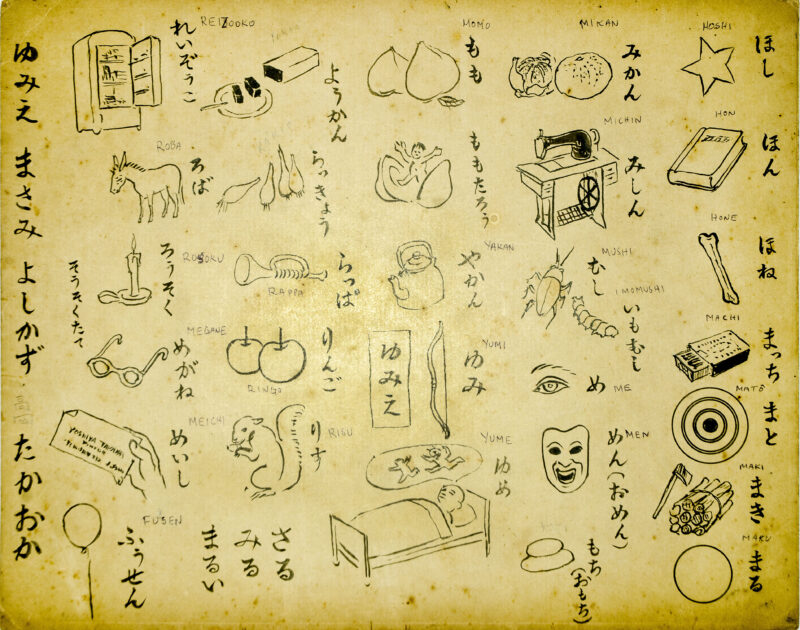 ほし
HOSHI
ほん
HON
ほね
HONE
まっち
MACHI
まと
MATO
まき
MAKI
まる
MARU
みかん
MIKAN
みしん
MICHIN
むし
MUSHI
いもむし
IMOMUSHI
め
ME
めん(おめん)
MEN
もち(おもち)
もも
MOMO
ももたろう
やかん
YAKAN
ゆみ
YUMI
ゆみえ
ゆめ
YUME
ようかん
らっきょう
らっぱ
RAPPA
りんご
RINGO
りす
RISU
れいぞうこ
REIZOOKO
ろば
ROBA
ろうそく
そうそくたて
めがね
MEGANE
めいし
MEICHI
ふうせん
FUSEN
さる
みる
まるい
ゆみえ まさみ よしかず たかおか